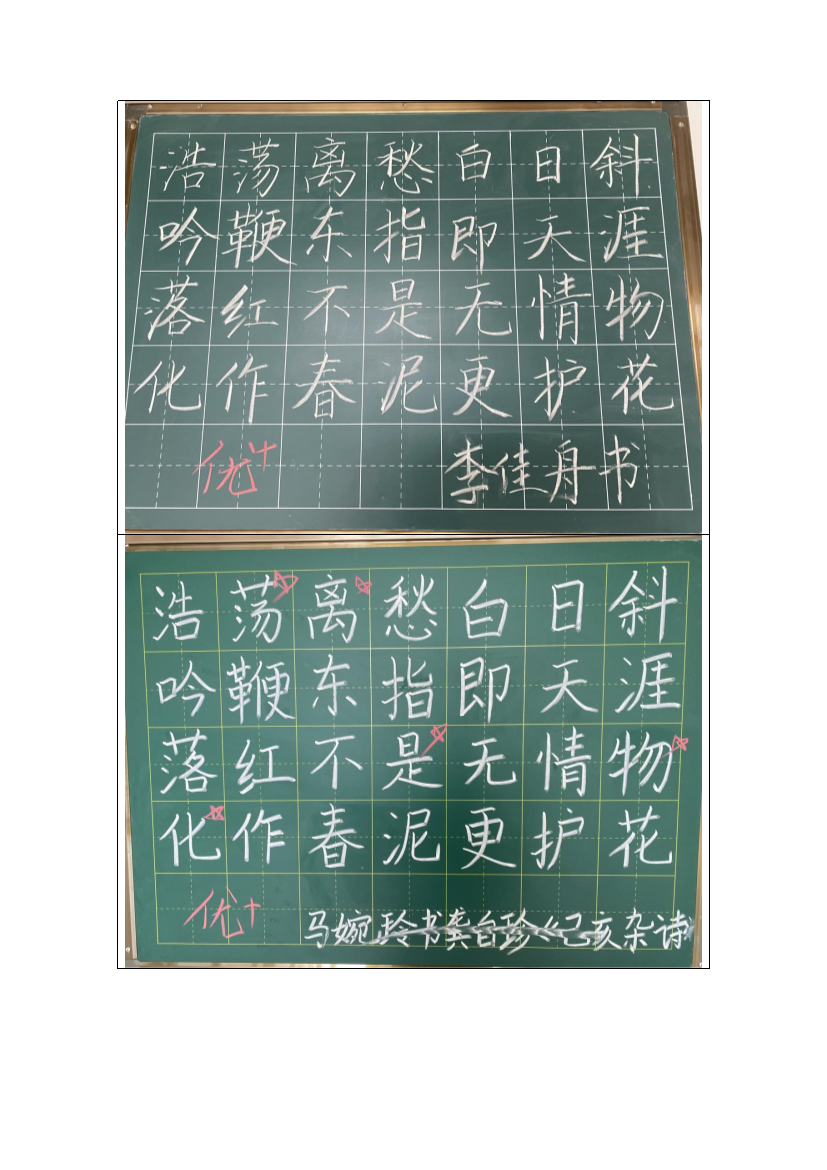 浩荡离愁白日斜
吟鞭东指即天涯
落红不是无情物
化作春泥更护花
优+
李佳舟书
浩荡离愁白日斜
吟鞭东指即天涯
落红不是无情物
化作春泥更护花
优+
马婉玲书龚自珍《己亥杂诗